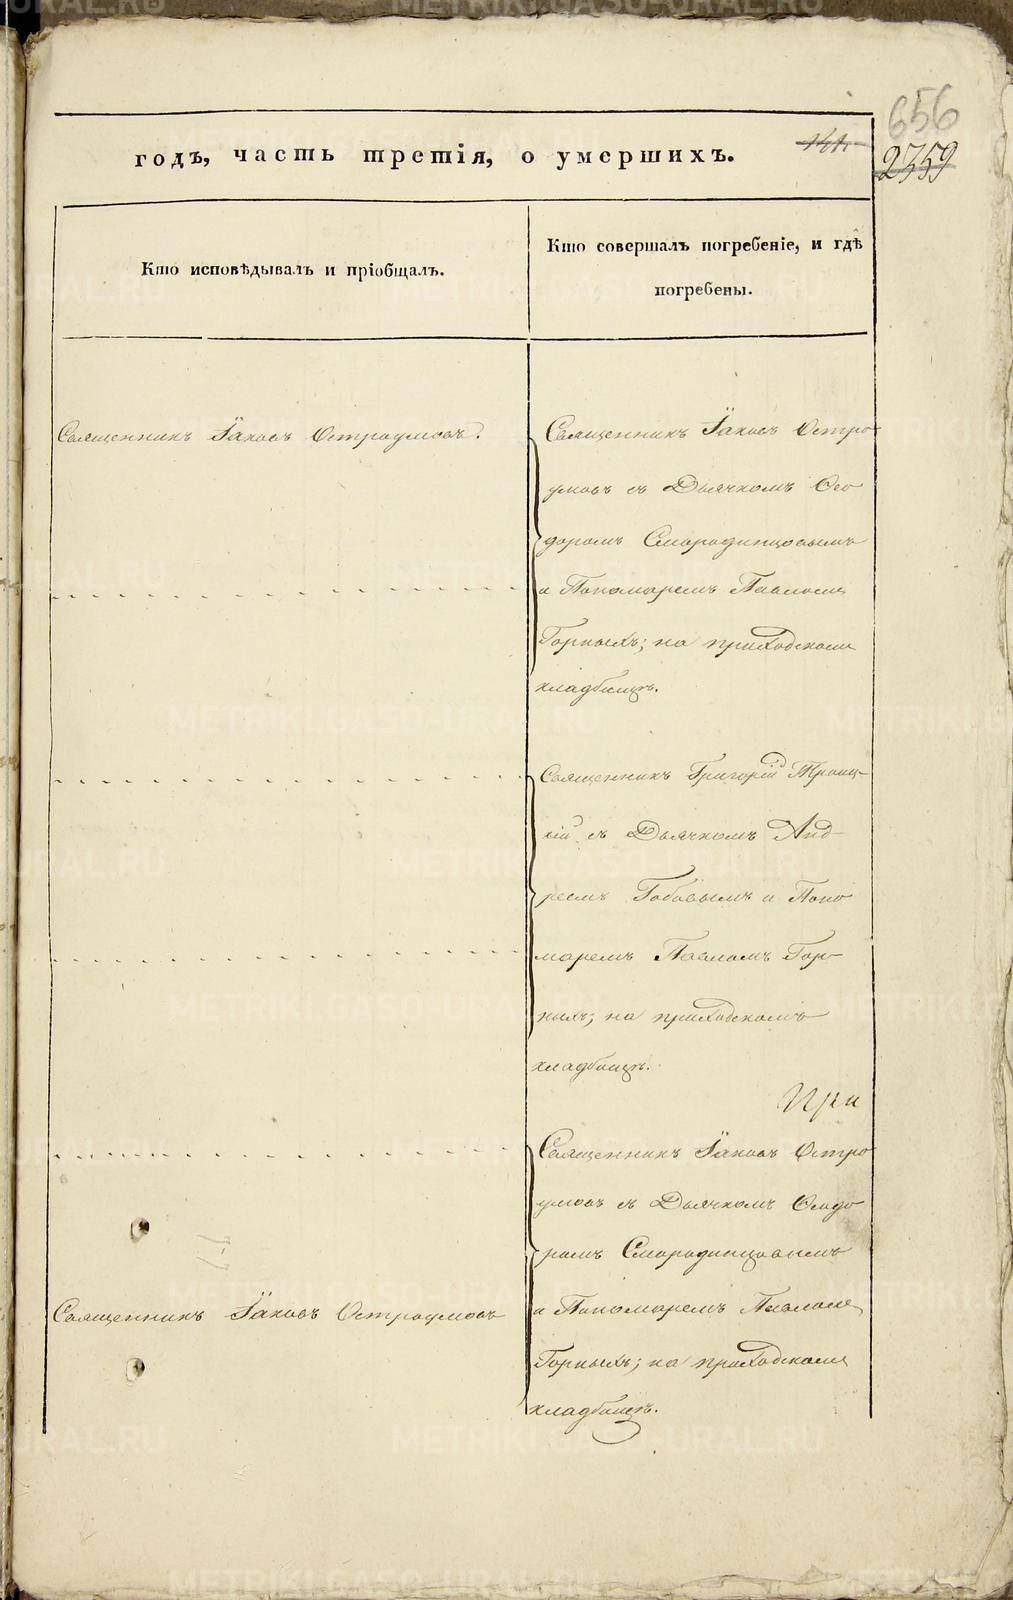 656
годъ, часть третія, о умершихъ.
2359
Кто исповѣдывалъ и пріобщалъ.
Кто совершалъ погребеніе, и гдѣ
погребены.
Священникъ Іаковъ Остроумовъ.
Священникъ Іаковъ Остро-
умовъ съ Дьячкомъ Ѳео
доромъ Смородинцовымъ
и Пономаремъ Павломъ
Горныхъ; на приходскомъ
кладбищѣ.
Священникъ Григорій Троиц-
кій съ Дьячкомъ Анд-
реемъ Бабовымъ и Поно
маремъ Павломъ Гор-
ныхъ; на приходскомъ
кладбищѣ.
При
Священникъ Іаковъ Остро
умовъ съ Дьячкомъ Ѳеодо
ромъ Смородинцовымъ
Священникъ Іаковъ Остроумовъ
и Пономаремъ Павломъ
Горныхъ; на приходскомъ
кладбищѣ.
METRIKI.GASO-URAL.RU